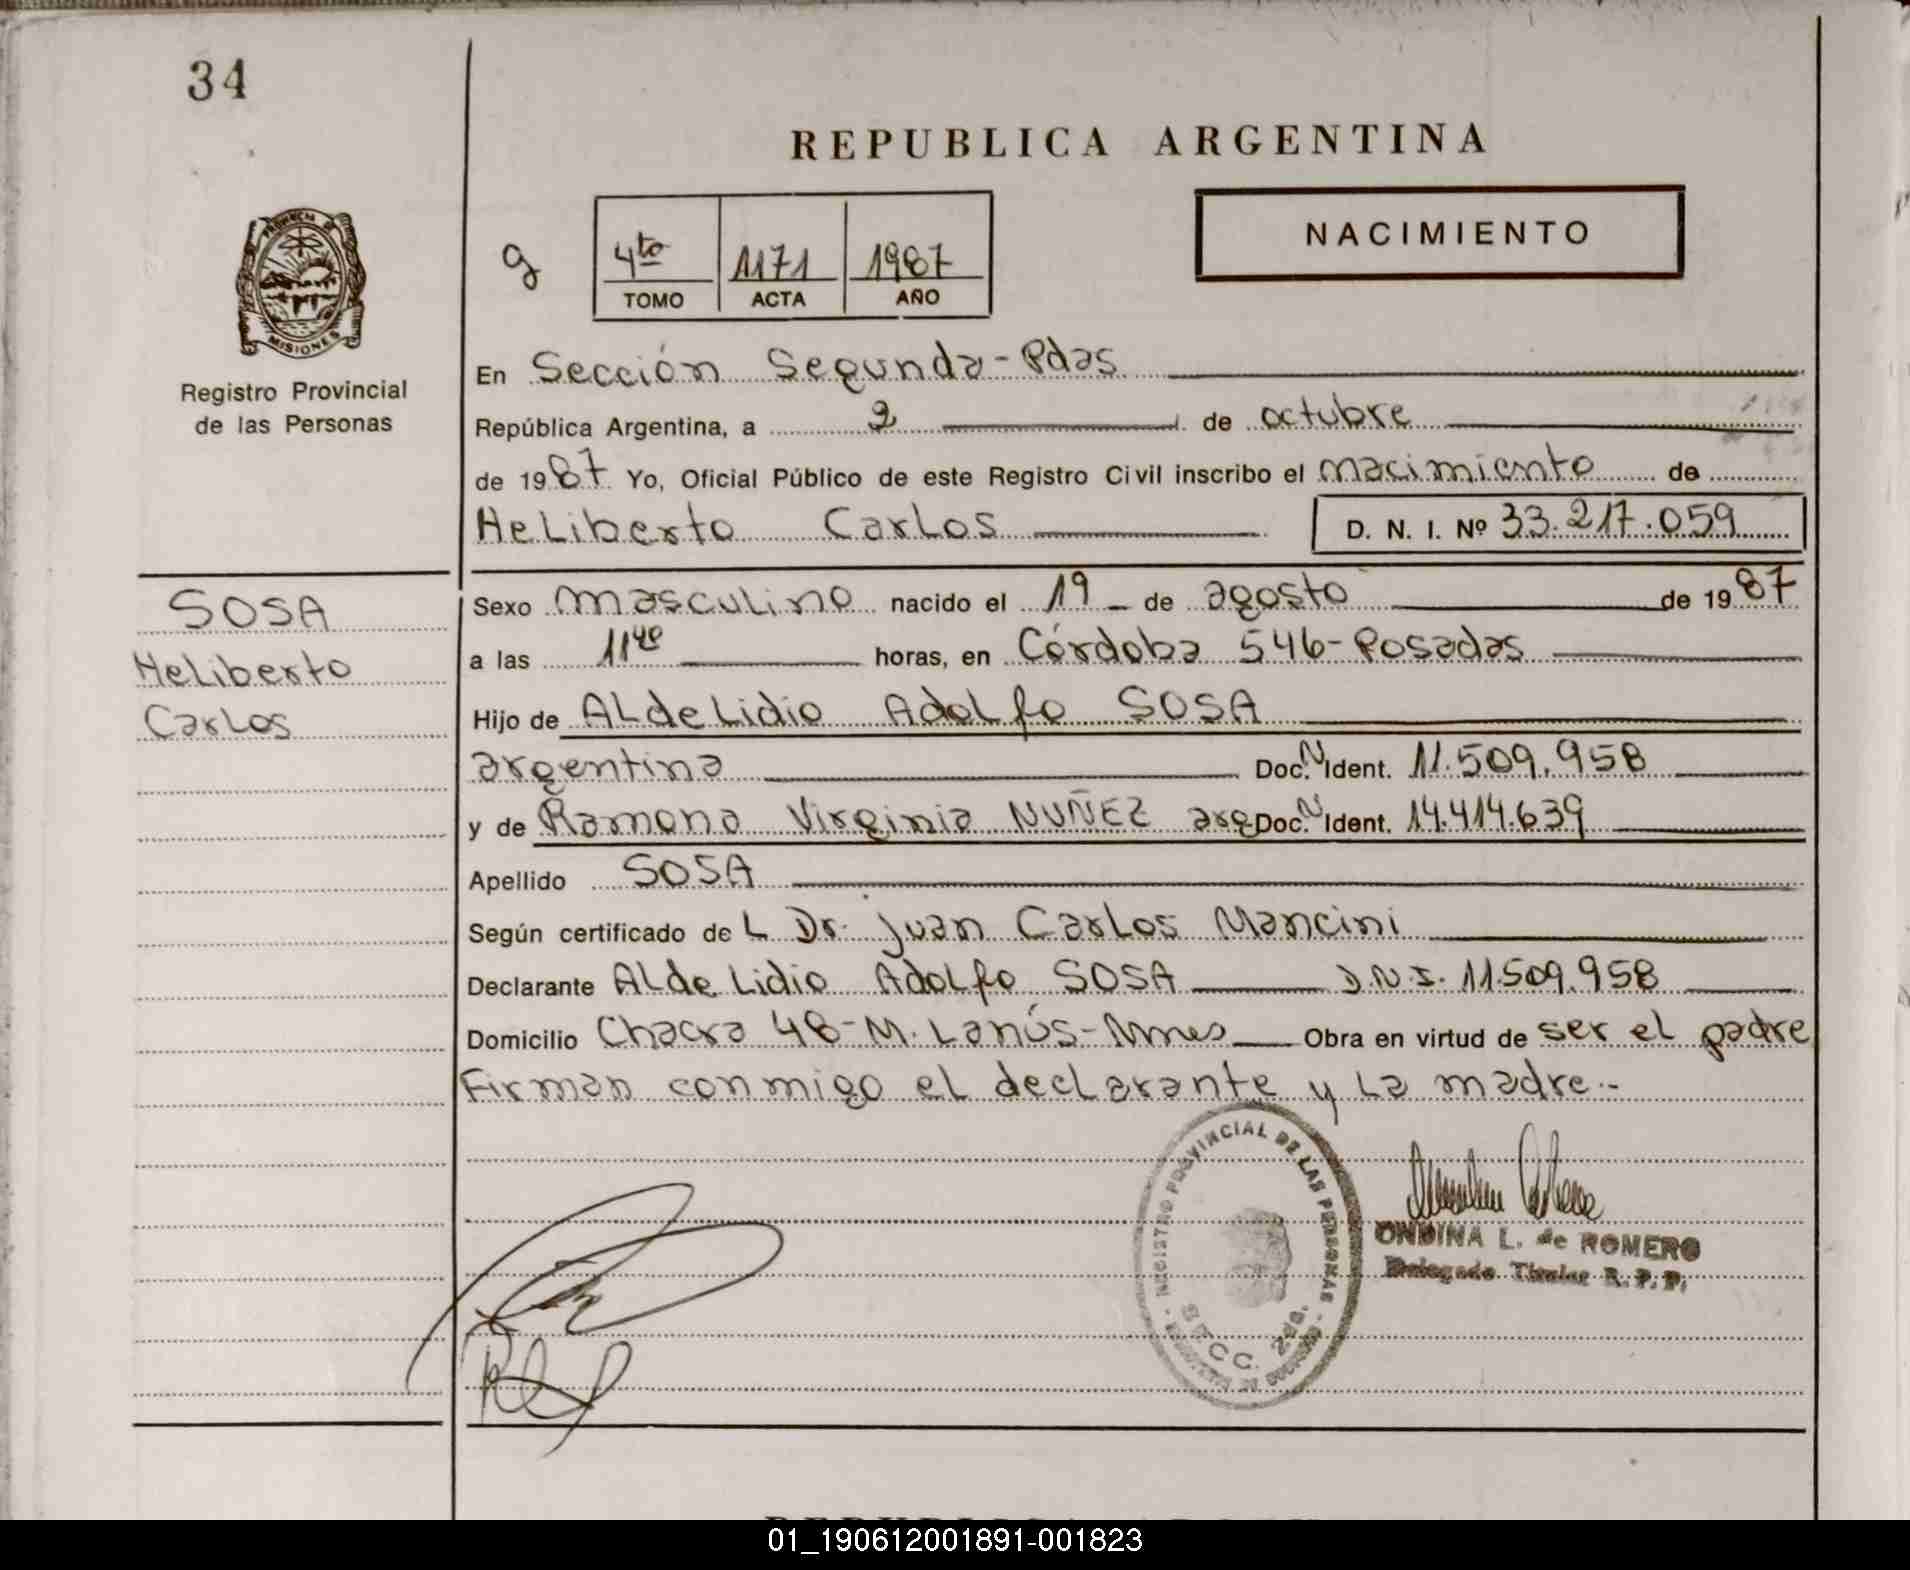 34
REPUBLICA ARGENTINA
PROVINCIA DE
MISIONES
Registro Provincial
de las Personas
NACIMIENTO
g
4to 1171 1987
TOMO ACTA AÑO
En Sección Segunda-Pdas
República Argentina, a 2 de octubre
de 1987 Yo, Oficial Público de este Registro Civil inscribo el nacimiento de
Heliberto Carlos D. N. I. Nº 33.217.059
SOSA
Heliberto
Carlos
Sexo masculino nacido el 19 de agosto de 1987
a las 11 horas, en Córdoba 546-Posadas
Hijo de Aldelidio Adolfo SOSA
argentina Doc. N Ident. 11.509.958
y de Ramona Virginia NUÑEZ arg Doc. N Ident. 14.414.639
Apellido SOSA
Según certificado de L Dr. Juan Carlos Mancini
Declarante Aldelidio Adolfo SOSA D.N.I. 11.509.958
Domicilio Chacra 48-M. Lanús-Mnes Obra en virtud de ser el padre
Firman conmigo el declarante y la madre.-
REGISTRO PROVINCIAL DE LAS PERSONAS
SECC. 2da.
ONDINA L. de ROMERO
Delegado Titular R. P. P.
01_190612001891-001823